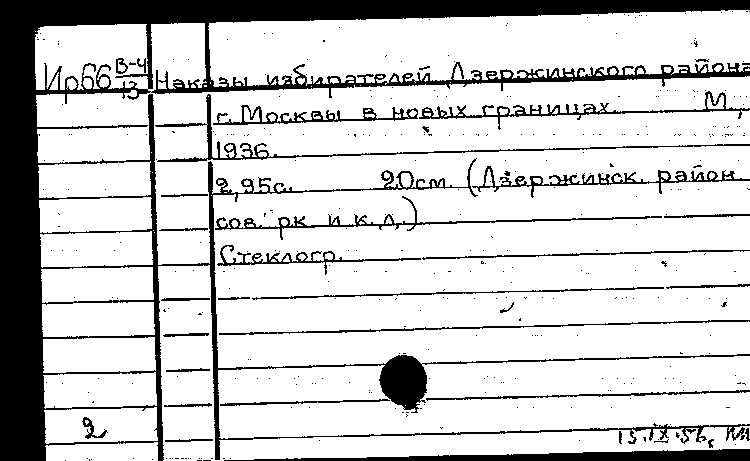 Ир66 В-4/13 Наказы избирателей Дзержинского района
г. Москвы в новых границах. М.,
1936.
2,95с. 20см. (Дзержинск. район.
сов. рк и к.д.)
Стеклогр.
2
15.IX.56,